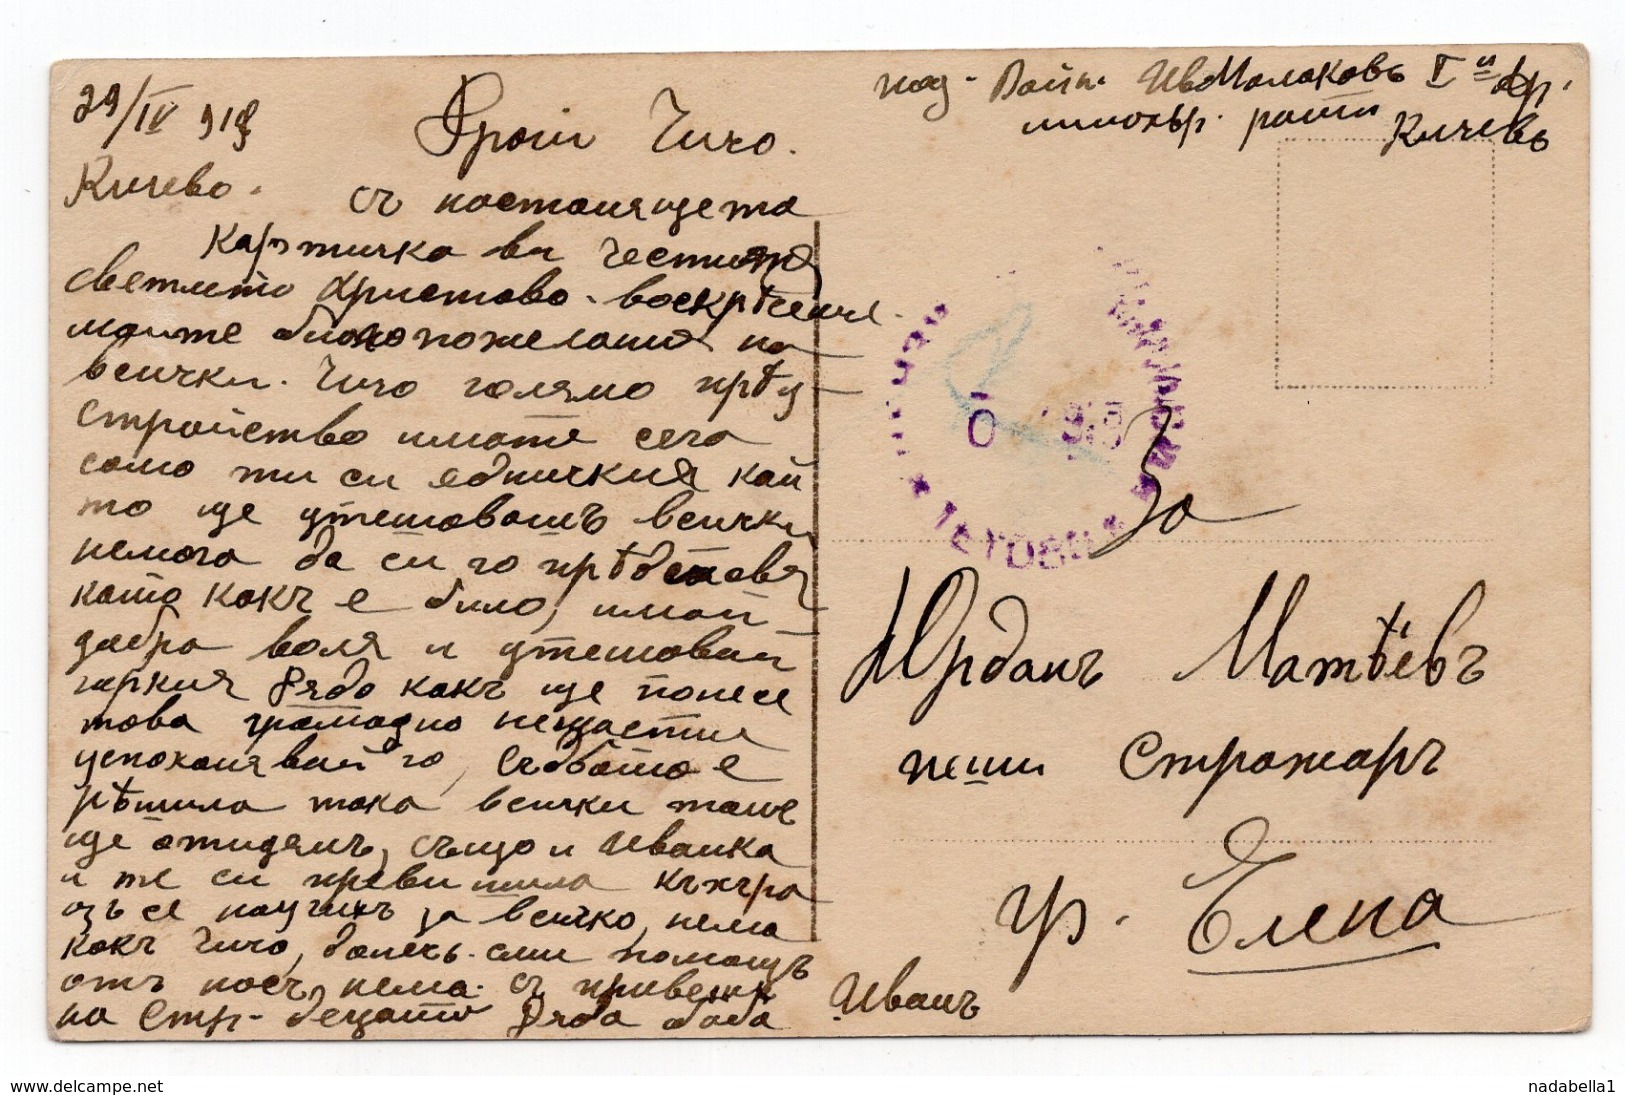 29/IV 918
Кичево.
Драги Чичо.
съ настоящето
картичка ви честитя
светлото Христово - воскрѣсение.
моите благопожелания на
всички. Чичо голямо прѣу-
стройство имате сега
само ти си ядничкия кой
то ще утешавашъ всички
немога да си го прѣдставя
като какъ е било, имай
добра воля и утешавай
горкия дядо какъ ще понесе
това грамадно нещастие
успокоявай го, съдбата е
рѣшила така всички там
ще отидемъ, също и Иванка
и те си
азъ се научихъ за всичко, нема
какъ Чичо, далечъ сми помощъ
отъ насъ нема. съ
на Стр. - децата дяда баба
Иванъ
под. - Войн. Ив Малаковъ I и др.
миохър. рота
Кичевъ
ТЕТОВО
За
Юрданъ Матѣевъ
пеши Стражаръ
гр. Елена
www.delcampe.net
nadabella1